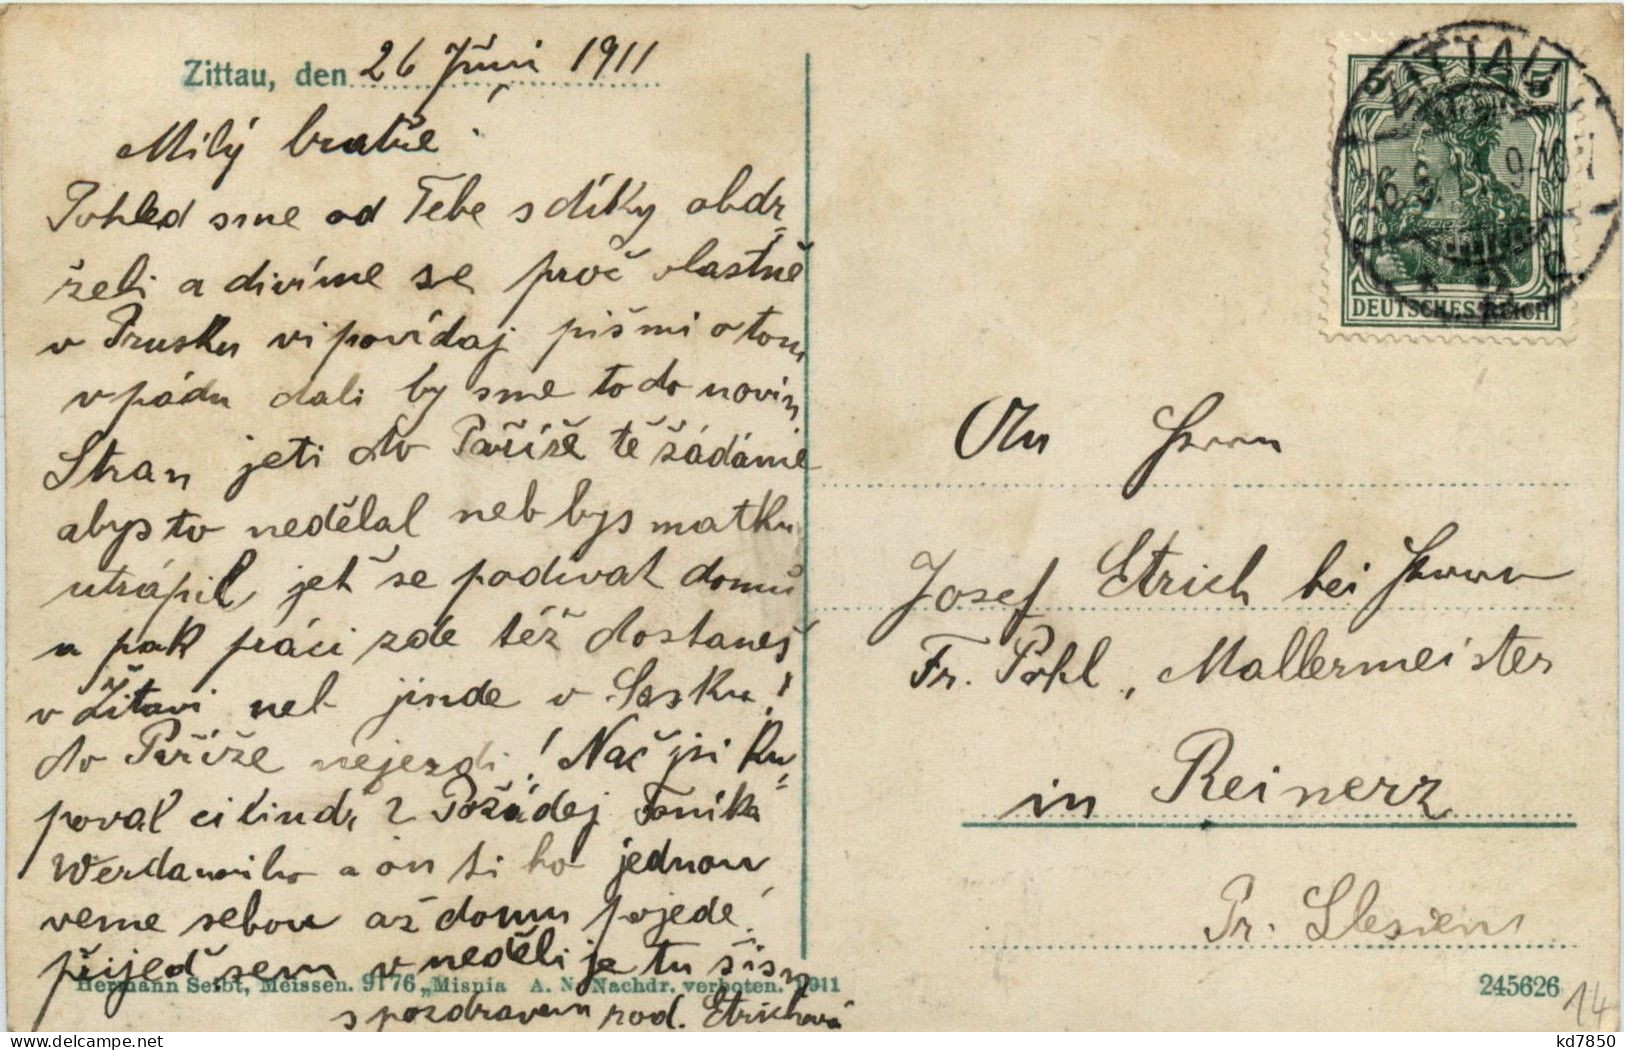 Zittau, den 26 Juni 1911
Milý bratře
Pohled sme od Tebe s díky obdr-
želi a divíme se proč vlastně
v Prusku vipovídaj pišmi o tom
v pádu dali by sme to do novin
Stran jeti do Paříže tě žádáme
abys to nedělal neb bys matku
utrápil, jeť se podivat domů
a pak práci zde též dostaneš
v Žitavi neb jinde v Sasku!
do Paříže nejezdi! Nač jsi ku-
poval cilindr? Požádej Toníka
a on ti ho jednou
veme sebou až domu pojede!
přijeď sem v neděli je tu
s pozdravem rod. Etrichová
Hermann Seibt, Meissen. 9176 „Misnia A. N. Nachdr. verboten. 1911
ZITTAU
26.6.11 9-10
5
DEUTSCHES REICH
An Herrn
Josef Etrich bei Herrn
Fr. Pohl, Mallermeister
in Reinerz
Pr. Slesien
245626
14
kd7850